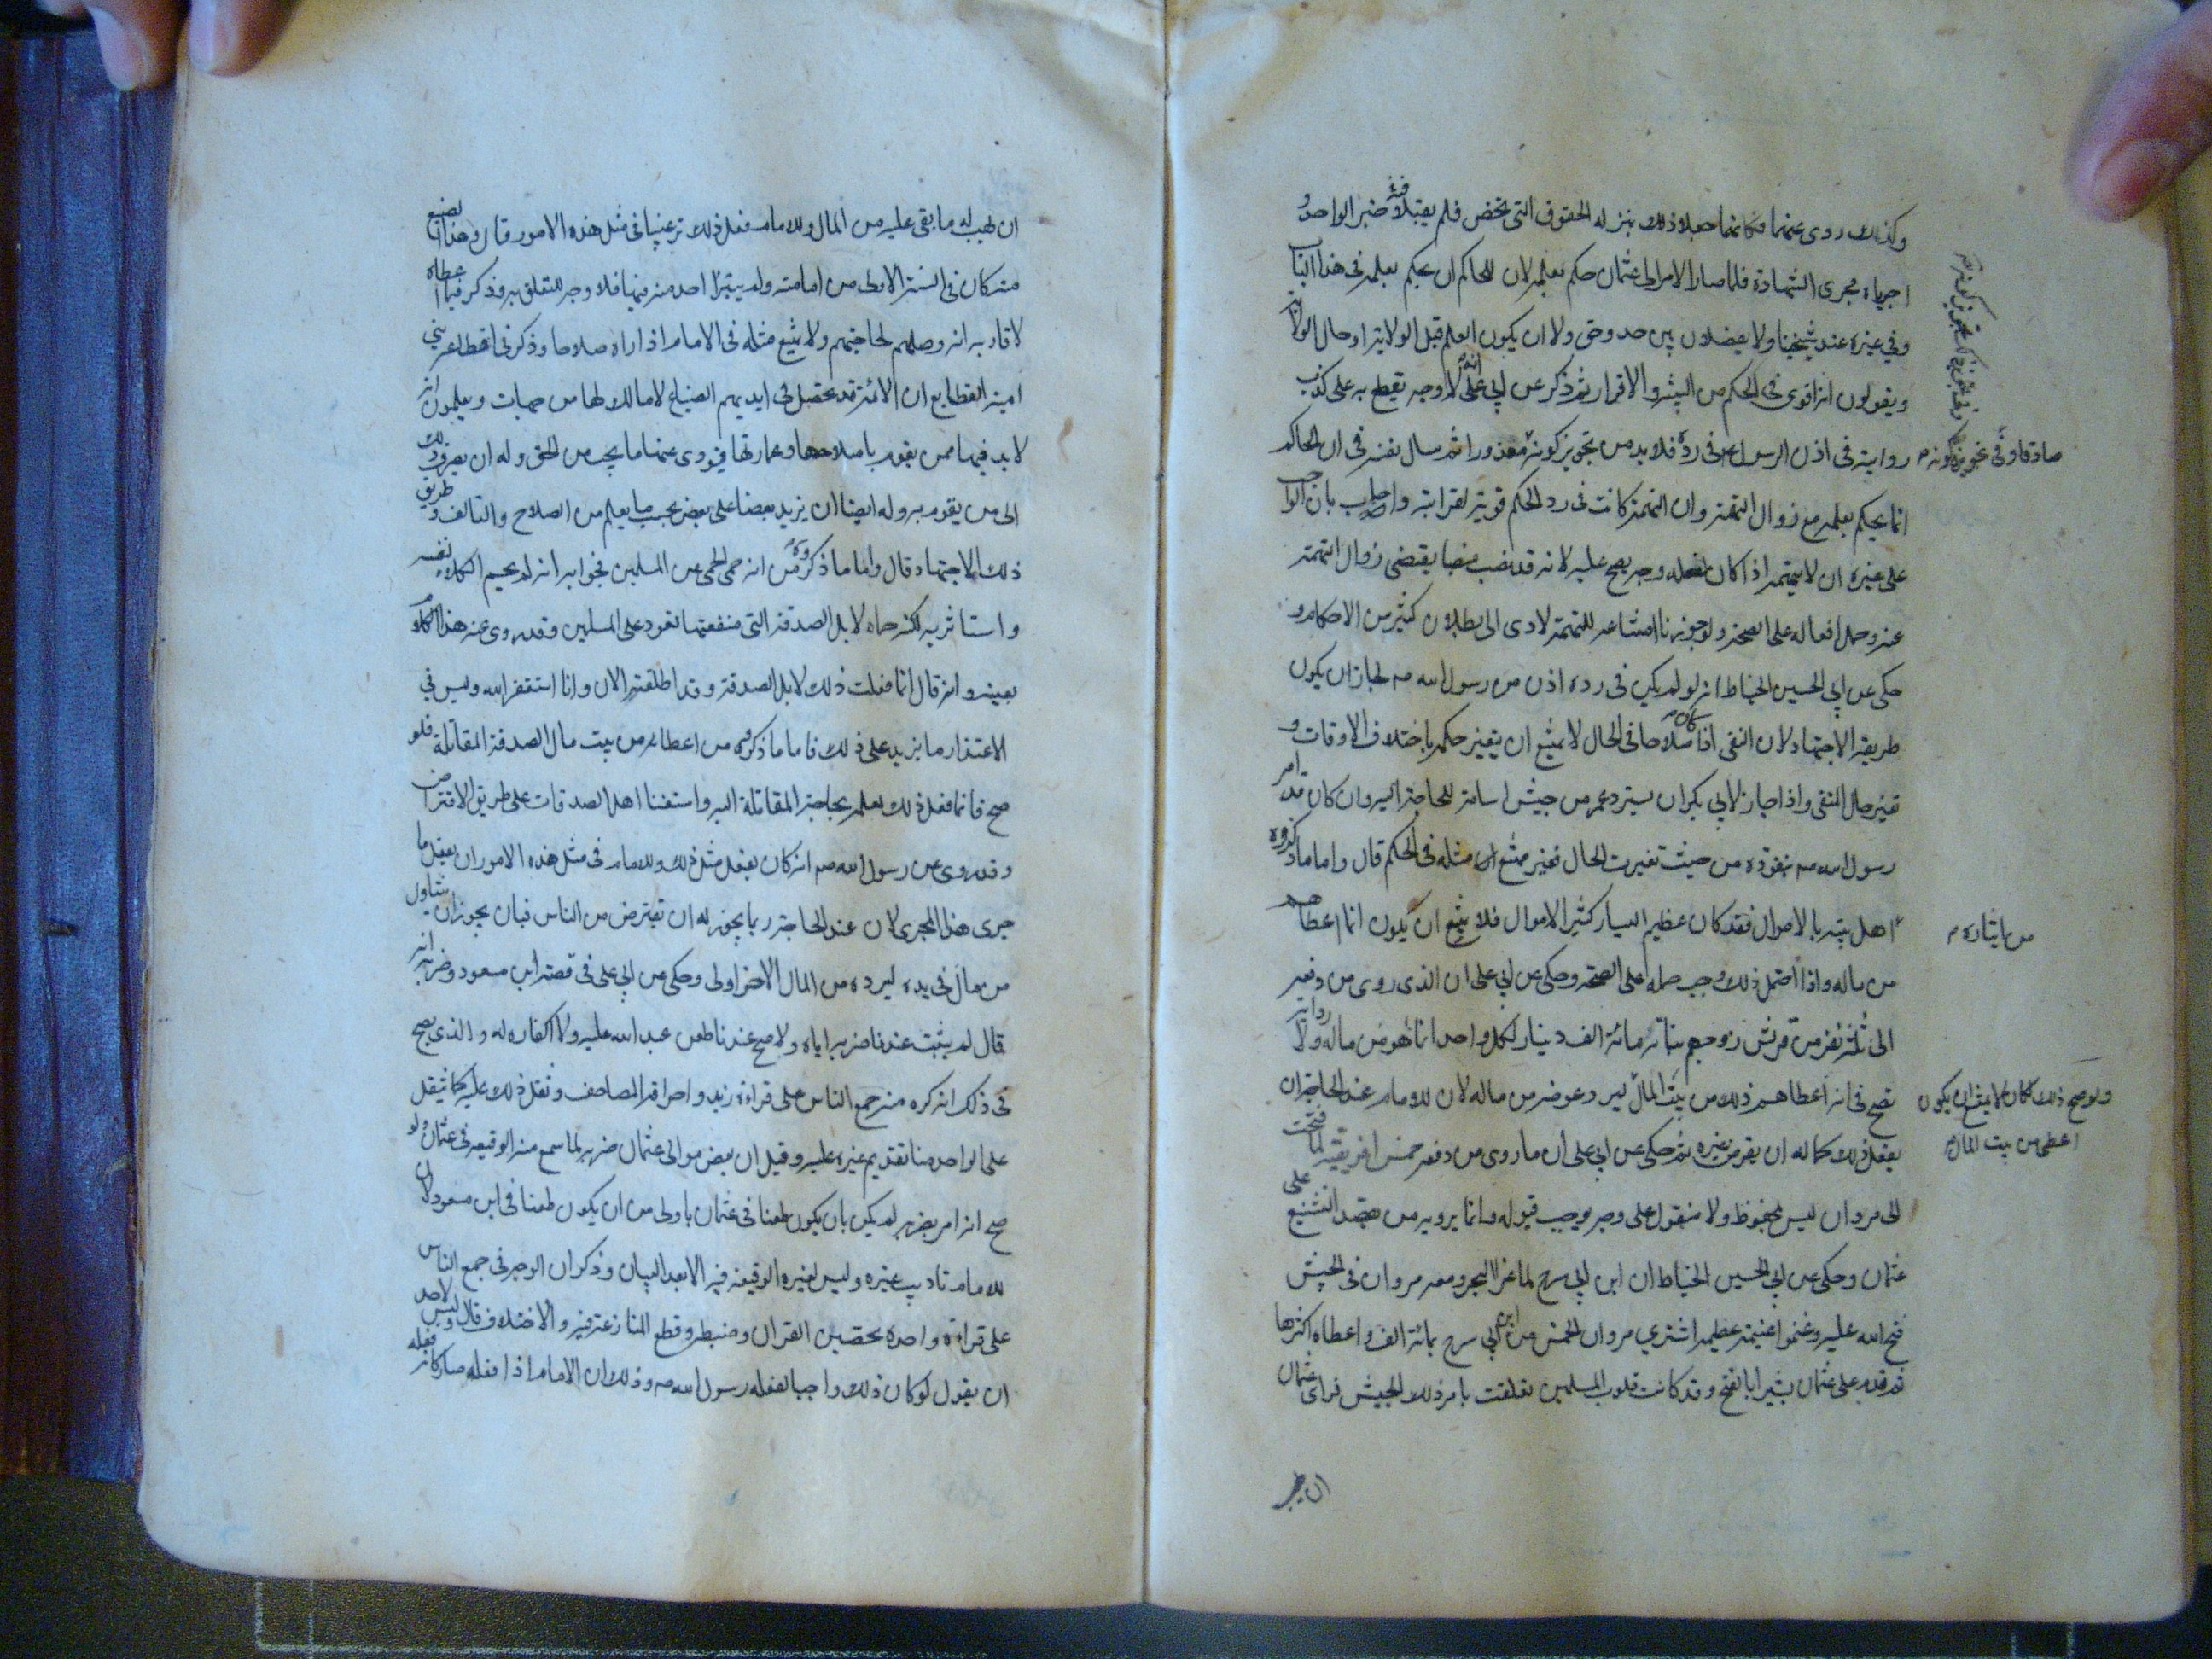 وكذلك روى عنهما فكانهما جعلا ذلك بمنزله الحقوق التى تخص فلم يقبلا فيه خبر الواحد و
اجرياه مجرى الشهادة فلما صار الامر الى عثمان حكم بعلمه لان للحاكم ان يحكم بعلمه فى هذا الباب
وفي غيره عند شيخينا ولا يفصلان بين حد وحق ولا ان يكون العلم قبل الولاية او حال الولاية
ويقولون انه اقوى فى الحكم من البينه والاقرار ثم ذكر عن ابي على انه لا وجه يقطع به على كذب
روايته فى اذن الرسول ص فى رده فلا بد من تجويز كونه معذورا ثم سال نفسه فى ان الحاكم
انما يحكم بعلمه مع زوال التهمة وان التهمة كانت فى رد الحكم قوية لقرابته واجاب بان الواجب
على غيره ان لا يتهمه اذا كان لفعله وجه يصح عليه لانه قد نصب منصبا يقتضى زوال التهمة
عنه وحمل افعاله على الصحة ولو جوزنا امتناعه للتهمة لادى الى بطلان كثير من الاحكام و
حكى عن ابي الحسين الخياط انه لو لم يكن فى رده اذن من رسول الله ص لجاز ان يكون
طريقه الاجتهاد لان النفى اذا كان صلاحا فى الحال لا يمتنع ان يتغير حكمه باختلاف الاوقات و
تغير حال المنفى واذا جاز لابي بكر ان يسترد عمر من جيش اسامة للحاجة اليه وان كان قد امر
رسول الله ص بنفوذه من حيث تغيرت الحال فغير ممتنع مثله فى الحكم قال واما ما ذكروه
اهل بيته بالاموال فقد كان عظيم اليسار كثير الاموال فلا يمتنع ان يكون انما اعطاهم
من ماله واذا احتمل ذلك وجب حمله على الصحة وحكى عن ابي على ان الذى روى من دفعه
الى ثلثة نفر من قريش زوجهم بناته مائة الف دينار لكل واحد انما هو من ماله ولا رواية
تصح فى انه اعطاهم ذلك من بيت المال ليرد عوضه من ماله لان للامام عند الحاجة ان
يفعل ذلك كما له ان يقرض غيره ثم حكى عن ابي على ان ما روى من دفعه خمس افريقية لما فتحت
الى مروان ليس بمحفوظ ولا منقول على وجه يوجب قبوله وانما يرويه من يقصد التشنيع على
عثمان وحكى عن ابي الحسين الخياط ان ابن ابي سرح لما غزا البحر ومعه مروان فى الجيش
فتح الله عليه وغنموا غنيمة عظيمة اشترى مروان الخمس من ابن ابي سرح بمائة الف واعطاه اكثرها
ثم قدم على عثمان بشيرا بالفتح وقد كانت قلوب المسلمين تعلقت بامر ذلك الجيش فراى عثمان
صادقا وفى تجويز كونه
من ايثاره
ولو صح ذلك لكان لا يمتنع ان يكون
اعطى من بيت المال
ان يهب له ما بقى عليه من المال وللامام فعل ذلك ترغيبا فى مثل هذه الامور قال وهذا الصنع
منه كان فى السنة الاولى من امامته ولم يتبرا احد منه فيها فلا وجه للتعلق به وذكر فيما اعطاه
لاقاربه انه وصلهم لحاجتهم ولا يمتنع مثله فى الامام اذا راه صلاحا وذكر فى اقطاعه بني
امية القطايع ان الائمة قد تحصل فى ايديهم الضياع لا مالك لها من جهات ويعلمون انه
لا بد فيها ممن يقوم باصلاحها وعمارتها فيؤدى عنها ما يجب من الحق وله ان يصرف ذلك
الى من يقوم به وله ايضا ان يزيد بعضا على بعض بحسب ما يعلم من الصلاح والتالف وطريق
ذلك الاجتهاد قال واما ما ذكروه من انه حمى الحمى عن المسلمين فجوابه انه لم يحم الكلاء لنفسه
واستاثر به لكنه حماه لابل الصدقة التى منفعتها تعود على المسلمين وقد روى عنه هذا الكلام
بعينه وانه قال انما فعلت ذلك لابل الصدقة وقد اطلقته الان وانا استغفر الله وليس في
الاعتذار ما يزيد على ذلك فاما ما ذكروه من اعطائه من بيت مال الصدقة المقاتلة فلو
صح فانما فعل ذلك لعلمه بحاجة المقاتلة اليه واستغناء اهل الصدقات على طريق الاقتراض
وقد روى عن رسول الله صم انه كان يفعل مثل ذلك وللامام فى مثل هذه الامور ان يفعل ما
جرى هذا المجرى لان عند الحاجة ربما يجوز له ان يقترض من الناس فبان يجوز ان يتناول
من مال فى يده ليرده من المال الاخر اولى وحكى عن ابي على فى قصة ابن مسعود وضربه انه
قال لم يثبت عندنا ضربه اياه ولا صح عندنا طعن عبد الله عليه ولا اكفاره له والذى يصح
فى ذلك انه كره منه جمع الناس على قراءة زيد واحراقه المصاحف وثقل ذلك عليه كما يثقل
على الواحد منا تقديم غيره عليه وقيل ان بعض موالى عثمان ضربه لما سمع منه الوقيعه فى عثمان ولو
صح انه امر بضربه لم يكن بان يكون طعنا فى عثمان باولى من ان يكون طعنا فى ابن مسعود لان
للامام تاديب غيره وليس لغيره الوقيعه فيه الا بعد البيان وذكر ان الوجه فى جمع الناس
على قراءة واحده تحصين القران وضبطه وقطع المنازعة فيه والاختلاف قال وليس لاحد
ان يقول لو كان ذلك واجبا لفعله رسول الله ص وذلك ان الامام اذا فعله صار كانه فعله